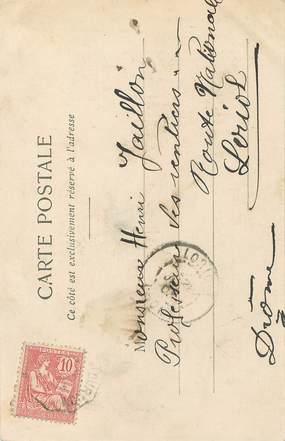 CARTE POSTALE
Ce côté est exclusivement réservé à l'adresse
Monsieur Henri Jaillon
des rentiers
Route Nationale
Loriol
Drôme
POSTES
10